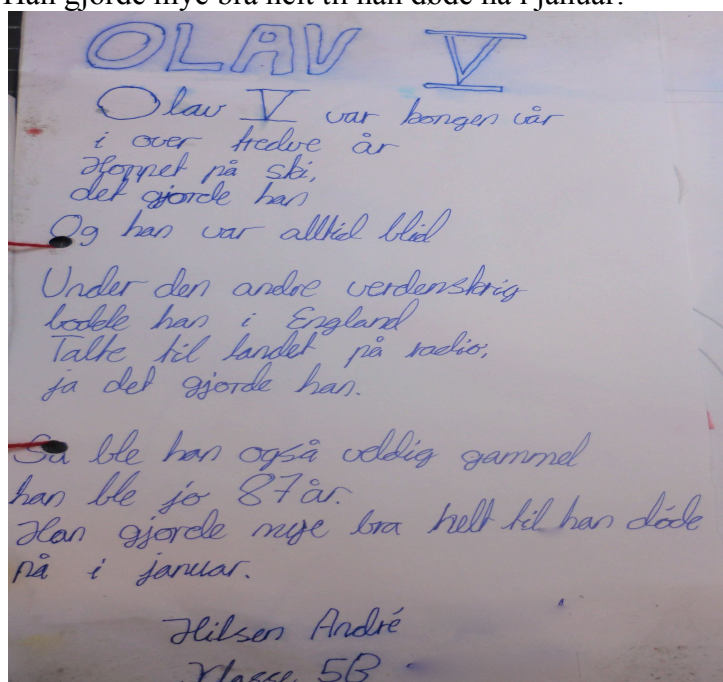 Han gjorde mye bra helt til han døde nå i januar.
OLAV V
Olav V var kongen vår
i over tredve år
Hoppet på ski,
det gjorde han
Og han var alltid blid
Under den andre verdenskrig
bodde han i England
Talte til landet på radio,
ja det gjorde han.
Så ble han også veldig gammel
han ble jo 87 år.
Han gjorde mye bra helt til han døde
nå i januar.
Hilsen André
Klasse 5B